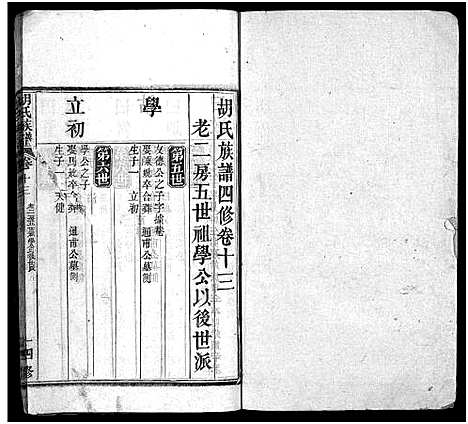 胡氏族譜四修卷十三
老二房五世祖學公以後世派
第五世
學
友德公之子字
娶 歿卒合葬 通甫公墓側
生子一 立初
第六世
立初
學公之子
娶馬歿卒合葬 通甫公墓側
生子一 天健
胡氏族譜
卷十三
四修